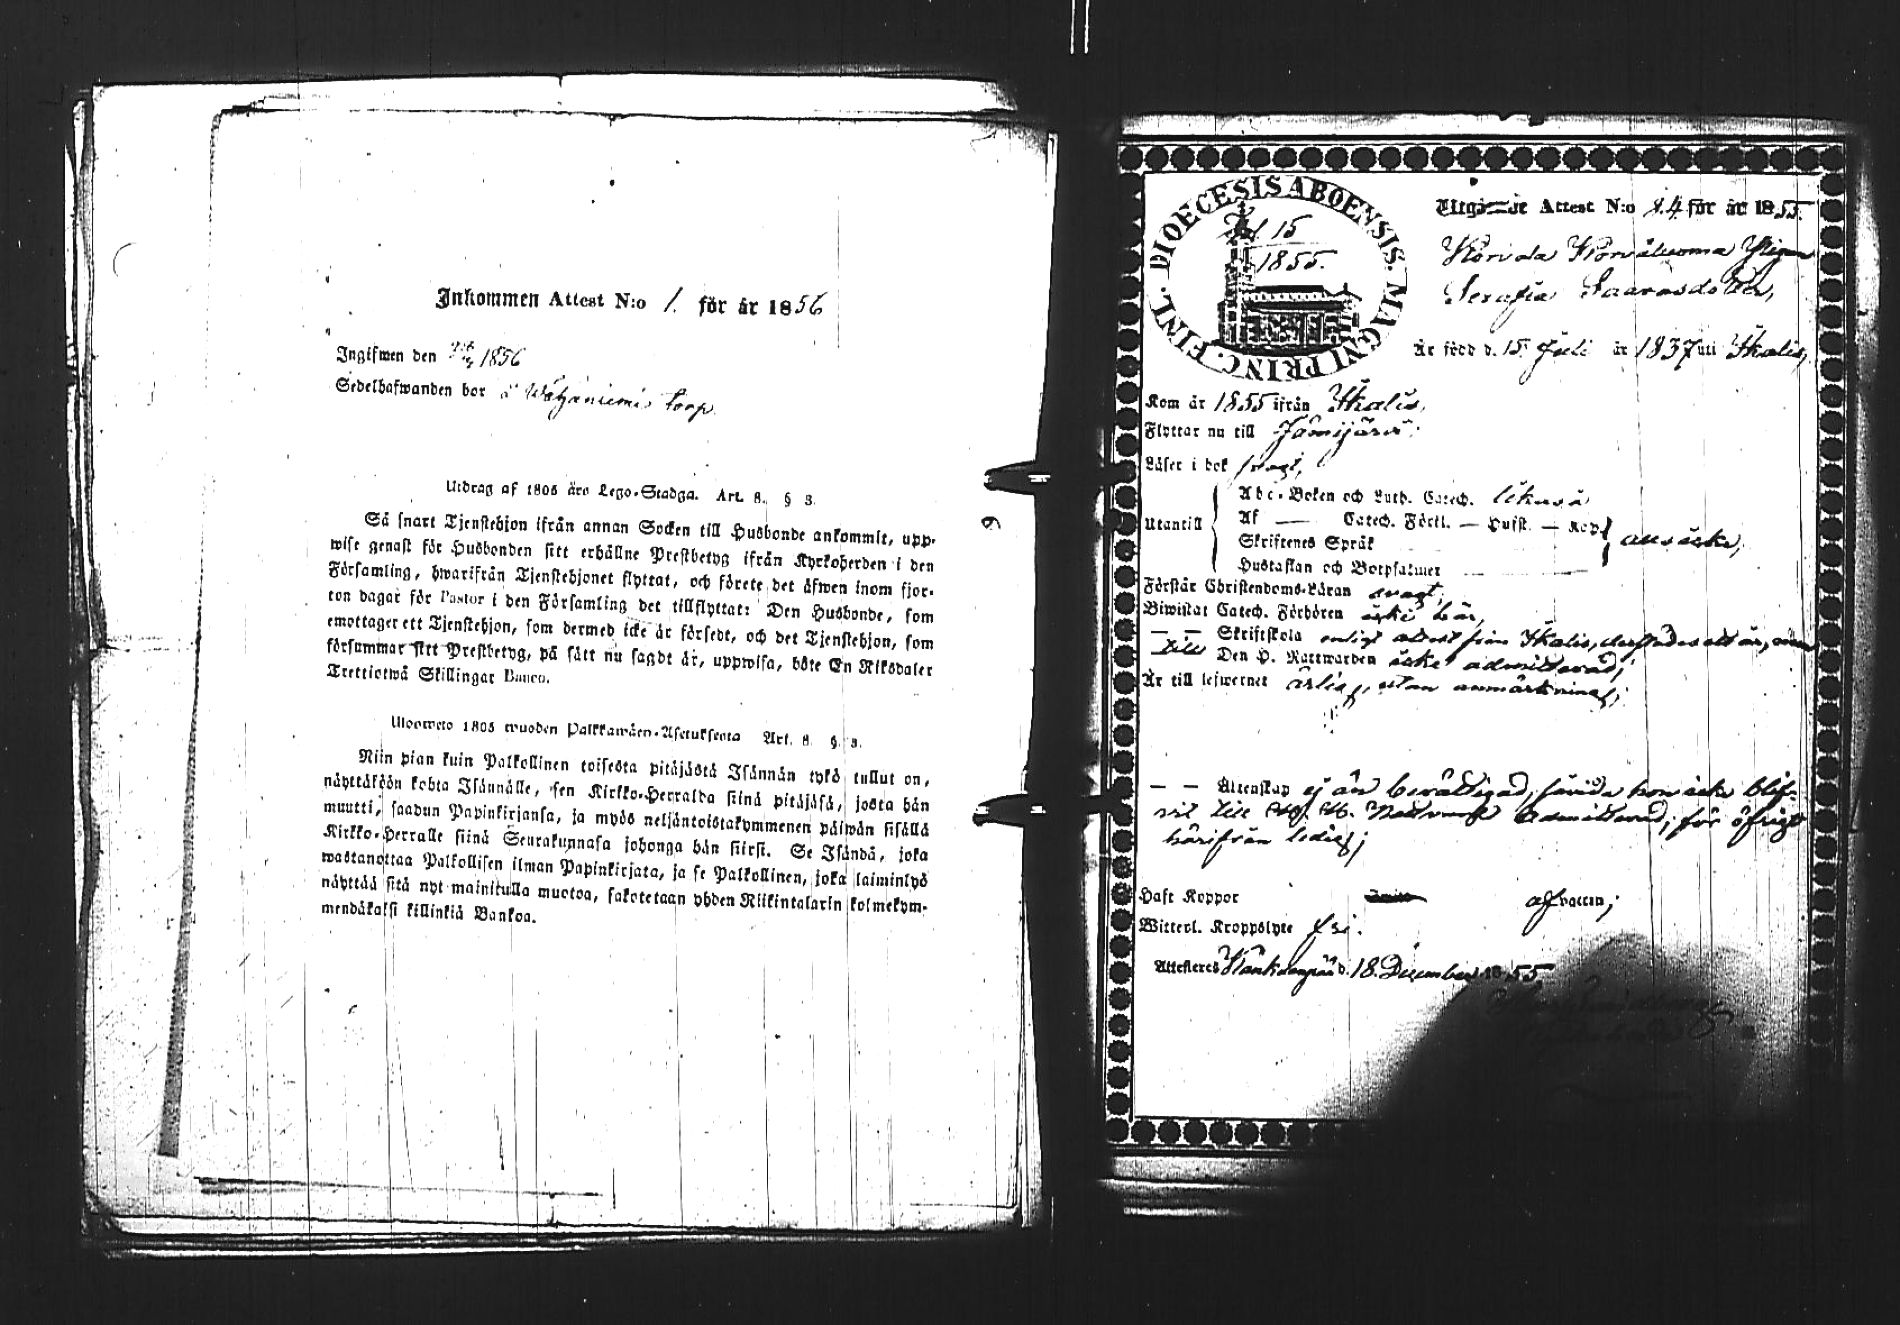 Inkommen Attest N:o 1. för år 1856
Ingifwen den 1856
Sedelhafwanden bor å torp.
Utdrag af 1805 års Lego-Stadga. Art. 8. § 3.
Så snart Tjenstehjon ifrån annan Socken till Husbonde ankommit, upp-
wise genast för Husbonden sitt erhållne Prestbetyg ifrån Kyrkoherden i den
Församling, hwarifrån Tjenstehjonet flyttat, och förete det äfwen inom fjor-
ton dagar för Pastor i den Församling det tillflyttat: Den Husbonde, som
emottager ett Tjenstehjon, som dermed icke är försedt, och det Tjenstehjon, som
försummar sitt Prestbetyg, på sätt nu sagdt är, uppwisa, böte En Riksdaler
Trettiotwå Skillingar Banco.
Ulosweto 1805 wuoden Palkkawäen-Asetuksesta Art. 8. §. 3.
Niin pian kuin Palkollinen toisesta pitäjästä Isännän tykö tullut on,
näyttäköön kohta Isännälle, sen Kirkko-Herralda siinä pitäjäsä, josta hän
muutti, saadun Papinkirjansa, ja myös neljäntoistakymmenen päiwän sisällä
Kirkko-Herralle siinä Seurakunnasa johonga hän siirsi. Se Isändä, joka
wastanottaa Palkollisen ilman Papinkirjata, ja se Palkollinen, joka laiminlyö
näyttää sitä nyt mainitulla muotoa, sakotetaan yhden Riikintalarin kolmekym-
mendäkaksi killinkiä Bankoa.
DIOECESIS ABOENSIS. MAGNI PRINC. FINL.
15
1855.
Utgående Attest N:o för år 1855.
Serafia
Är född d. 15 Juli år 1837 uti Ikalis,
Kom år 1855 ifrån Ikalis,
Flyttar nu till Jämijärvi.
Läser i bok svagt,
Utantill
Abc-Boken och Luth. Catech. likaså
Af — Catech. Förkl. — Husft. — Kop
Skriftenes Språk
Hustaflan och Botpsalmer
Förstår Christendoms-Läran svagt,
Biwistat Catech. Förhören icke här,
— — Skriftskola enligt attest från Ikalis,
till Den H. Nattwarden icke admitterad;
Är till lefwernet ärlig, utan anmärkning;
— — Äktenskap ej än berättigad, hon icke blif-
vit till H. H. Nattvard admitterad; för öfrigt
härifrån ledig;
Haft Koppor af vaccin;
Witterl. Kroppslyte fri.
Attesteras Kankaanpää d. 18. December 1855.